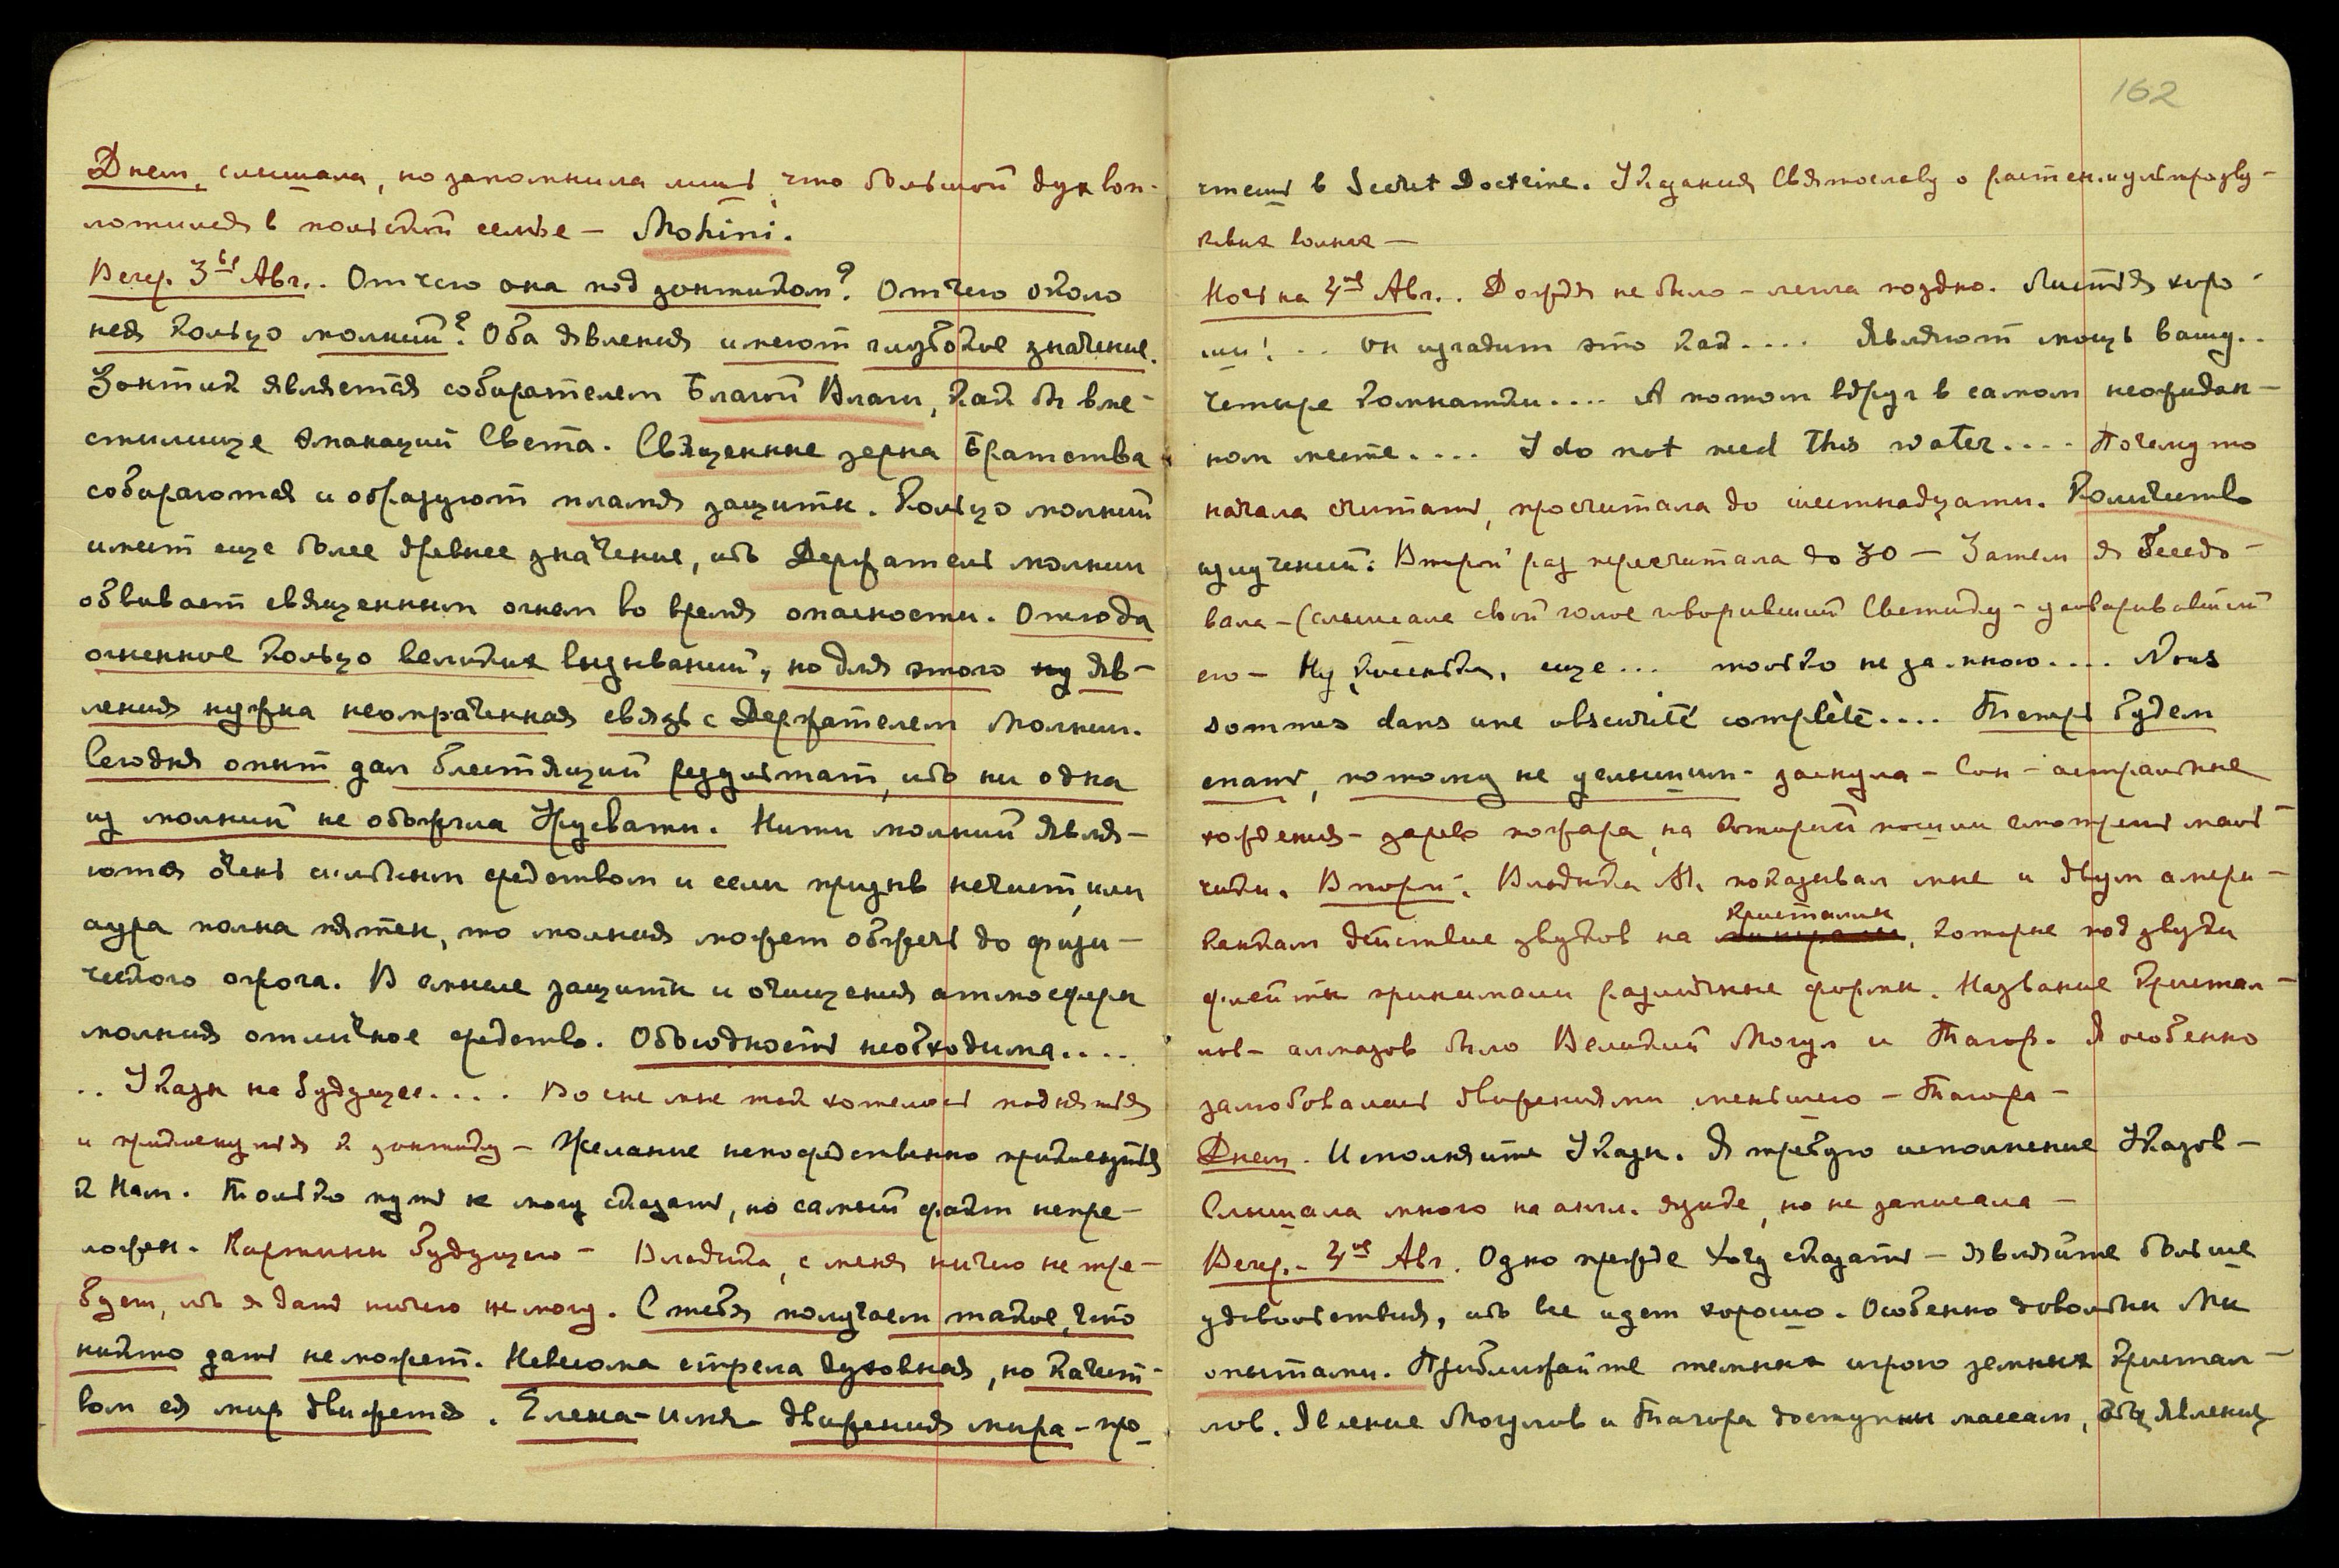 Днем, слышала, но запомнила лишь, что большой дух воп-
лотился в польской семье — Mohini.
Вечер. 3ье Авг.. Отчего она под зонтиком? Отчего около
нея кольцо молний? Оба явления имеют глубокое значение.
Зонтик является собирателем Благой Влаги, как бы вме-
стилище эманаций Света. Священные зерна Братства
собираются и образуют пламя защиты. Кольцо молний
имеет еще более древнее значение, ибо Держатель молнии
обвивает священным огнем во время опасности. Отсюда
огненное кольцо великих вызываний, но для этого яв-
ления нужна неомраченная связь с Держателем Молнии.
Сегодня опыт дал блестящий результат, ибо ни одна
из молний не обожгла Урусвати. Нити молний явля-
ются очень сильным средством и если призыв нечист, или
аура полна пятен, то молния может обжечь до физи-
ческого ожога. В смысле защиты и очищения атмосферы
молния отличное средство. Обоюдность необходима....
.. Указы на будущее.... Во сне мне так хотелось подняться
и прикоснуться к зонтику — Желание непосредственно прикоснуться
к Нам. Только путь не могу сказать, но самый факт непре-
ложен. Картины будущего — Владыка, с меня ничего не тре-
бует, ибо я дать ничего не могу. С тебя получаем такое, что
никто дать не может. Невесома стрела духовная, но качест-
вом ея мир движется. Елена-имя- движения мира - про-
162
чтешь в Secret Doctrine. Указания Святославу о растен. и ультразву-
ковых волнах —
Ночь на 4ое Авг.. Дождя не было - легла поздно. Листья хоро-
ши!... он изгадит это как.... Являют мощь вашу..
четыре комнатки.... А потом вдруг в самом неожидан-
ном месте.... I do not need this water.... Почему то
начала считать, просчитала до шестнадцати. Количество
излучений. Второй раз пересчитала до 30 — Затем я беседо-
вала - (слышала свой голос говоривший Светику - уговаривавший
его — Ну, еще... только не за мною.... Nous
sommes dans une obscurité complète.... Теперь будем
спать, потому не услышим - заснула - Сон - астральные
хождения - зарево пожара, на который пошли смотреть маль-
чики. Второй. Владыка М. показывал мне и двум амери-
канкам действие звуков на кристаллы, которые под звуки
флейты принимали различные формы. Название кристал-
лов - алмазов было Великий Могул и Тагор. Я особенно
залюбовалась движениями меньшего — Тагора —
Днем. Исполняйте Указы. Я требую исполнение Указов —
Слышала много на англ. языке, но не записала —
Вечер. - 4ое Авг. Одно прежде хочу сказать — являйте больше
удовольствия, ибо все идет хорошо. Особенно довольны Мы
опытами. Приближайте темных игрою земных кристал-
лов. Явление Могулов и Тагора доступны массам, явления